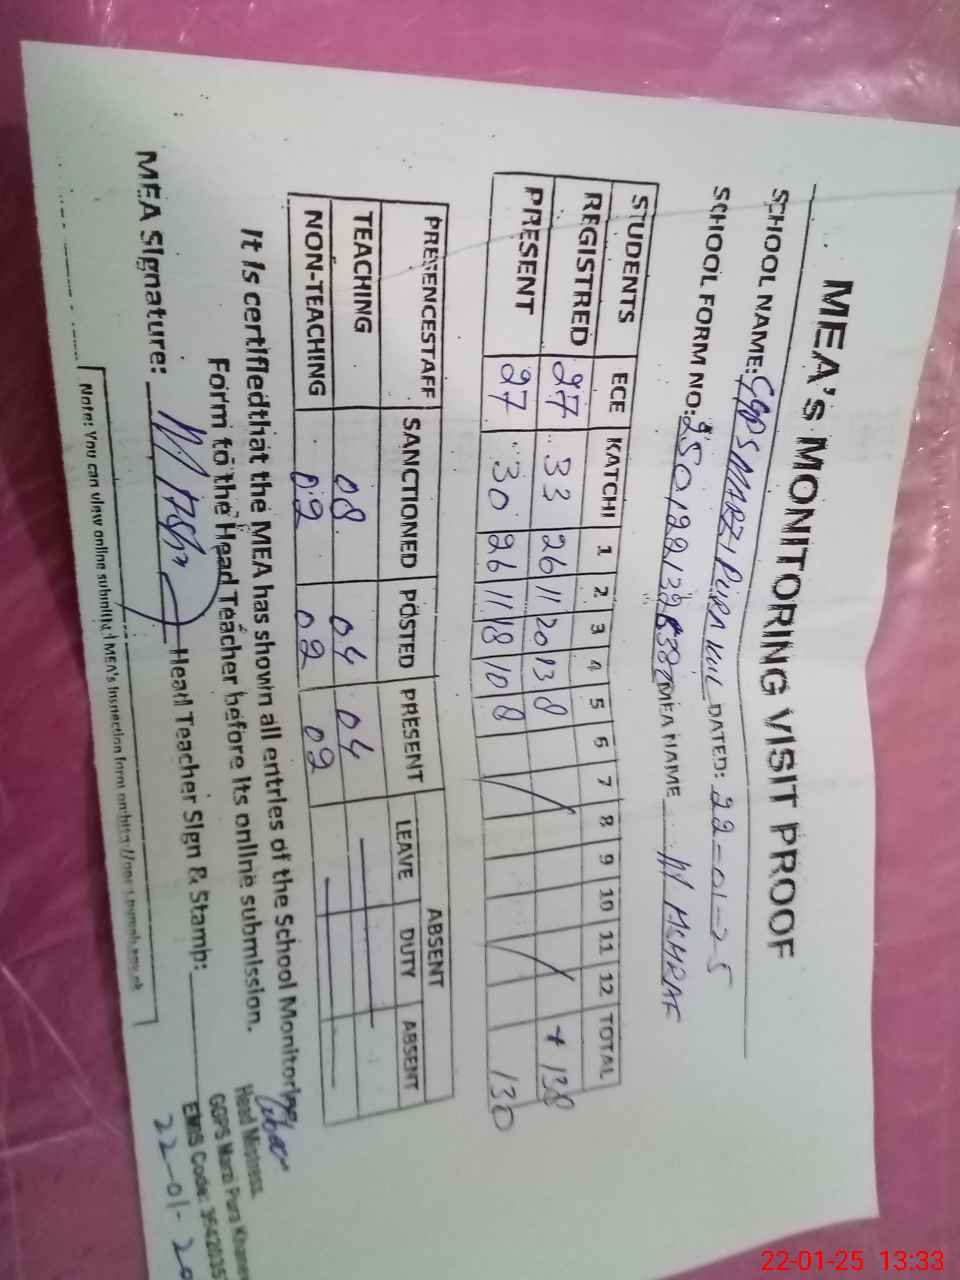 MEA's MONITORING VISIT PROOF
SCHOOL NAME: GGPS MARZI PURA KUL DATED: 22-01-25
SCHOOL FORM NO: MEA NAME M ASHRAF
STUDENTS ECE KATCHI 1 2 3 4 5 6 7 8 9 10 11 12 TOTAL
REGISTRED 27 33 26 11 20 13 8 138
PRESENT 27 30 26 11 18 10 8 130
PRESENCESTAFF SANCTIONED POSTED PRESENT ABSENT
LEAVE DUTY ABSENT
TEACHING 08 04 04
NON-TEACHING 02 02 02
It is certifiedthat the MEA has shown all entries of the School Monitoring
Form to the Head Teacher before its online submission.
MEA Signature: Head Teacher Sign & Stamp:
Head Mistress.
GGPS Marzi Pura
EMIS Code:
22-01-
Note: You can view online submitted MEA's Inspection form on:
22-01-25 13:33